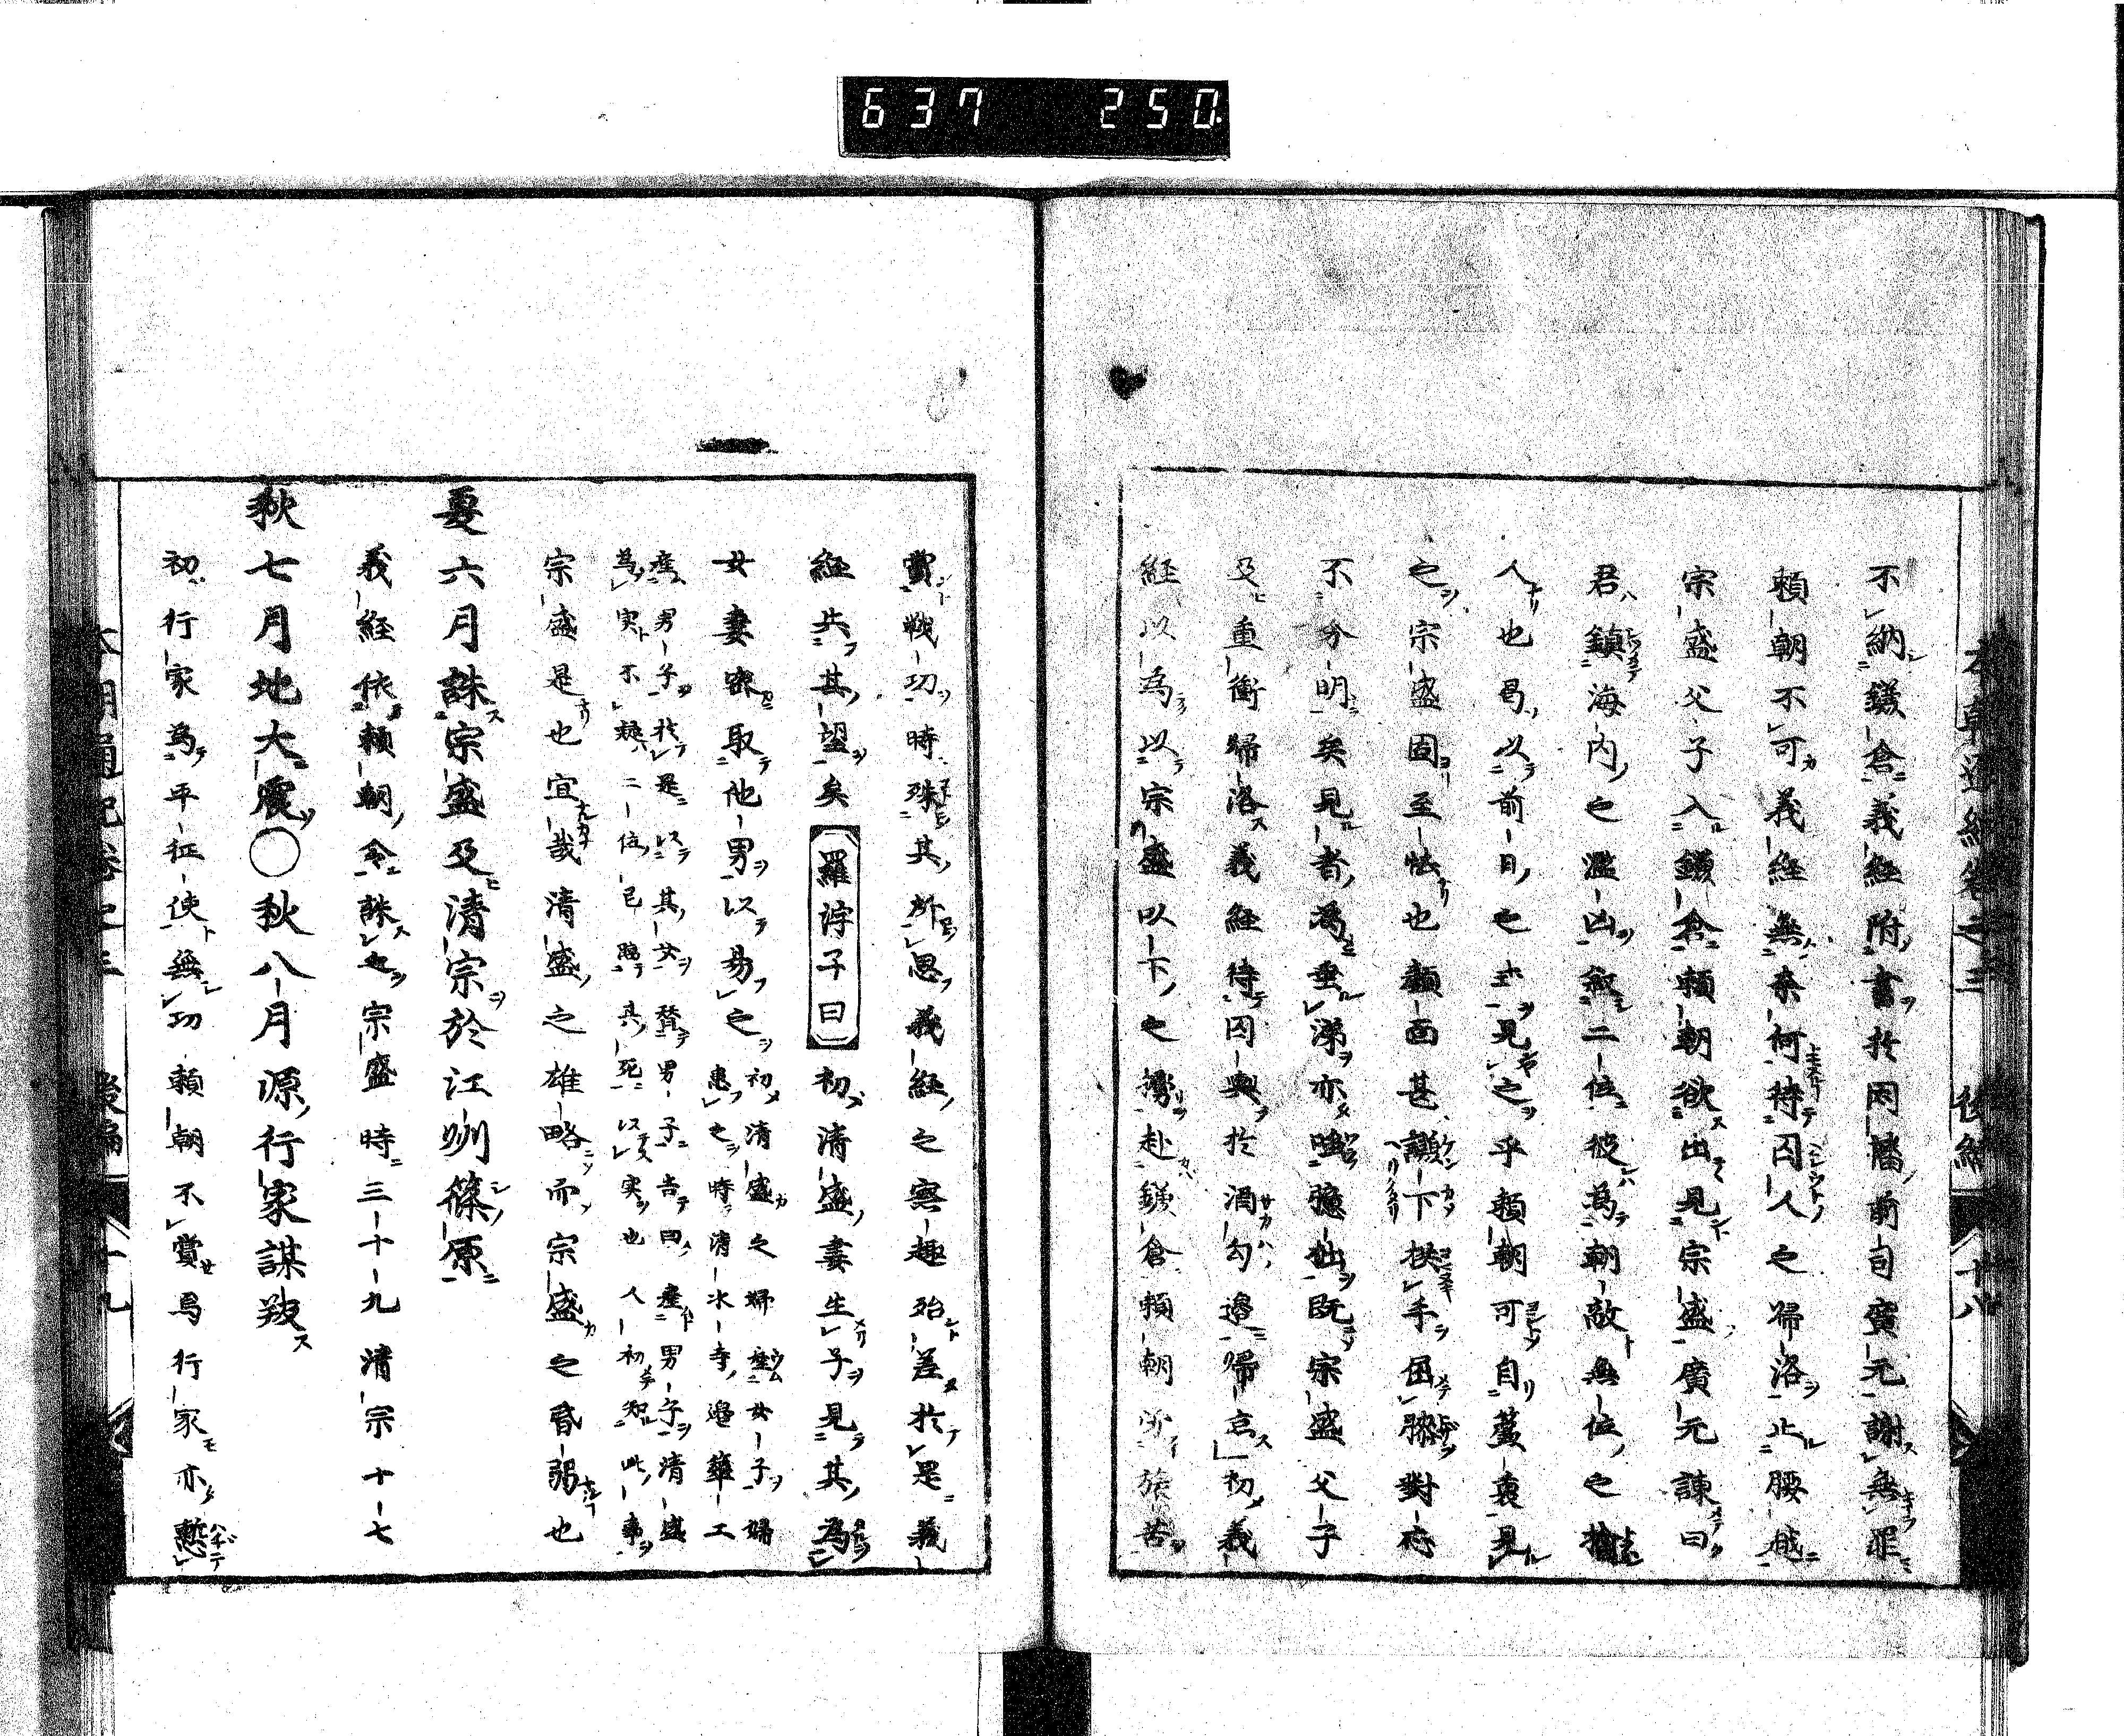 637 250
不納鎌倉義経附書於因幡前司廣元謝無罪
頼朝不可義経無来何待囚人之帰洛止腰越
宗盛父子入鎌倉頼朝欲出見宗盛廣元諌曰
君鎮海内之濫凶叙二位彼為朝敵無位之
人也曷以前日之士見之乎頼朝可自簾裏見
之宗盛固至怯也顔面甚謙下拱手屈膝對応
不分明矣見者為垂涕亦嗤既宗盛父子
及重衡帰洛義経待囚輿於酒匂邉帰京初義
経以為以宗盛以下之赴鎌倉頼朝労旅苦
賞戦功時殊其所思義経之寃趣殆差於是義
経共其望矣
羅浮子曰
初清盛妻生子見其為
女妻密取他男以易之
初清盛之婦産女子婦
患之時清水寺邉傘工
産男子於是以其女替男子告曰産男子清盛
為実不疑二位已臨其死以実也人初知此事
宗盛是也宜哉清盛之雄略而宗盛之昏弱也
夏六月誅宗盛及清宗於江州篠原
義経依頼朝令誅之宗盛時三十九清宗十七
秋七月地大震〇秋八月源行家謀叛
初行家為平征使無功頼朝不賞焉行家亦慙